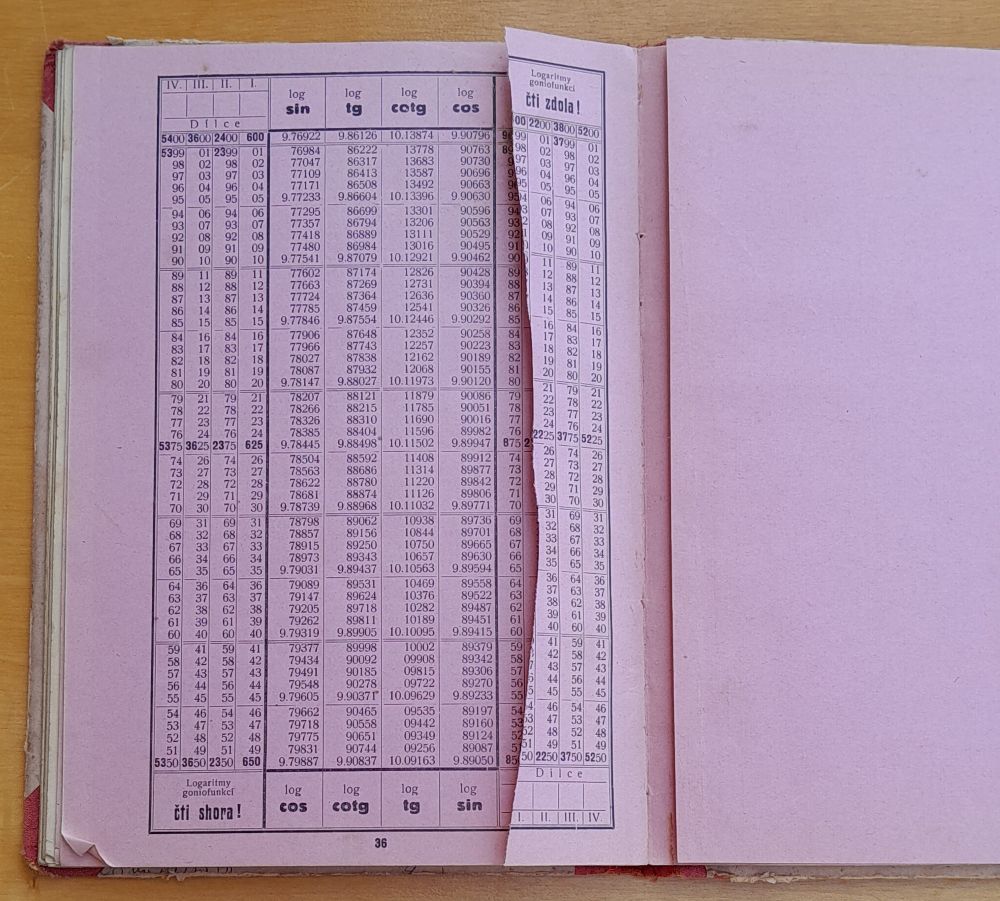 IV. III. II. I. log log log log Logaritmy
goniofunkcí
sin tg cotg cos čti zdola!
Dílce
5400 3600 2400 600 9.76922 9.86126 10.13874 9.90796 00 2200 3800 5200
5399 01 2399 01 76984 86222 13778 90763 99 01 3799 01
98 02 98 02 77047 86317 13683 90730 98 02 98 02
97 03 97 03 77109 86413 13587 90696 97 03 97 03
96 04 96 04 77171 86508 13492 90663 96 04 96 04
95 05 95 05 9.77233 9.86604 10.13396 9.90630 95 05 95 05
94 06 94 06 77295 86699 13301 90596 94 06 94 06
93 07 93 07 77357 86794 13206 90563 93 07 93 07
92 08 92 08 77418 86889 13111 90529 92 08 92 08
91 09 91 09 77480 86984 13016 90495 91 09 91 09
90 10 90 10 9.77541 9.87079 10.12921 9.90462 90 10 90 10
89 11 89 11 77602 87174 12826 90428 89 11 89 11
88 12 88 12 77663 87269 12731 90394 88 12 88 12
87 13 87 13 77724 87364 12636 90360 87 13 87 13
86 14 86 14 77785 87459 12541 90326 86 14 86 14
85 15 85 15 9.77846 9.87554 10.12446 9.90292 85 15 85 15
84 16 84 16 77906 87648 12352 90258 84 16 84 16
83 17 83 17 77966 87743 12257 90223 83 17 83 17
82 18 82 18 78027 87838 12162 90189 82 18 82 18
81 19 81 19 78087 87932 12068 90155 81 19 81 19
80 20 80 20 9.78147 9.88027 10.11973 9.90120 80 20 80 20
79 21 79 21 78207 88121 11879 90086 79 21 79 21
78 22 78 22 78266 88215 11785 90051 78 22 78 22
77 23 77 23 78326 88310 11690 90016 77 23 77 23
76 24 76 24 78385 88404 11596 89982 76 24 76 24
5375 3625 2375 625 9.78445 9.88498 10.11502 9.89947 875 2225 3775 5225
74 26 74 26 78504 88592 11408 89912 74 26 74 26
73 27 73 27 78563 88686 11314 89877 73 27 73 27
72 28 72 28 78622 88780 11220 89842 72 28 72 28
71 29 71 29 78681 88874 11126 89806 71 29 71 29
70 30 70 30 9.78739 9.88968 10.11032 9.89771 70 30 70 30
69 31 69 31 78798 89062 10938 89736 69 31 69 31
68 32 68 32 78857 89156 10844 89701 68 32 68 32
67 33 67 33 78915 89250 10750 89665 67 33 67 33
66 34 66 34 78973 89343 10657 89630 66 34 66 34
65 35 65 35 9.79031 9.89437 10.10563 9.89594 65 35 65 35
64 36 64 36 79089 89531 10469 89558 64 36 64 36
63 37 63 37 79147 89624 10376 89522 63 37 63 37
62 38 62 38 79205 89718 10282 89487 62 38 62 38
61 39 61 39 79262 89811 10189 89451 61 39 61 39
60 40 60 40 9.79319 9.89905 10.10095 9.89415 60 40 60 40
59 41 59 41 79377 89998 10002 89379 59 41 59 41
58 42 58 42 79434 90092 09908 89342 58 42 58 42
57 43 57 43 79491 90185 09815 89306 57 43 57 43
56 44 56 44 79548 90278 09722 89270 56 44 56 44
55 45 55 45 9.79605 9.90371 10.09629 9.89233 55 45 55 45
54 46 54 46 79662 90465 09535 89197 54 46 54 46
53 47 53 47 79718 90558 09442 89160 53 47 53 47
52 48 52 48 79775 90651 09349 89124 52 48 52 48
51 49 51 49 79831 90744 09256 89087 51 49 51 49
5350 3650 2350 650 9.79887 9.90837 10.09163 9.89050 50 2250 3750 5250
Logaritmy log log log log Dílce
goniofunkcí
čti shora! cos cotg tg sin I. II. III. IV.
36